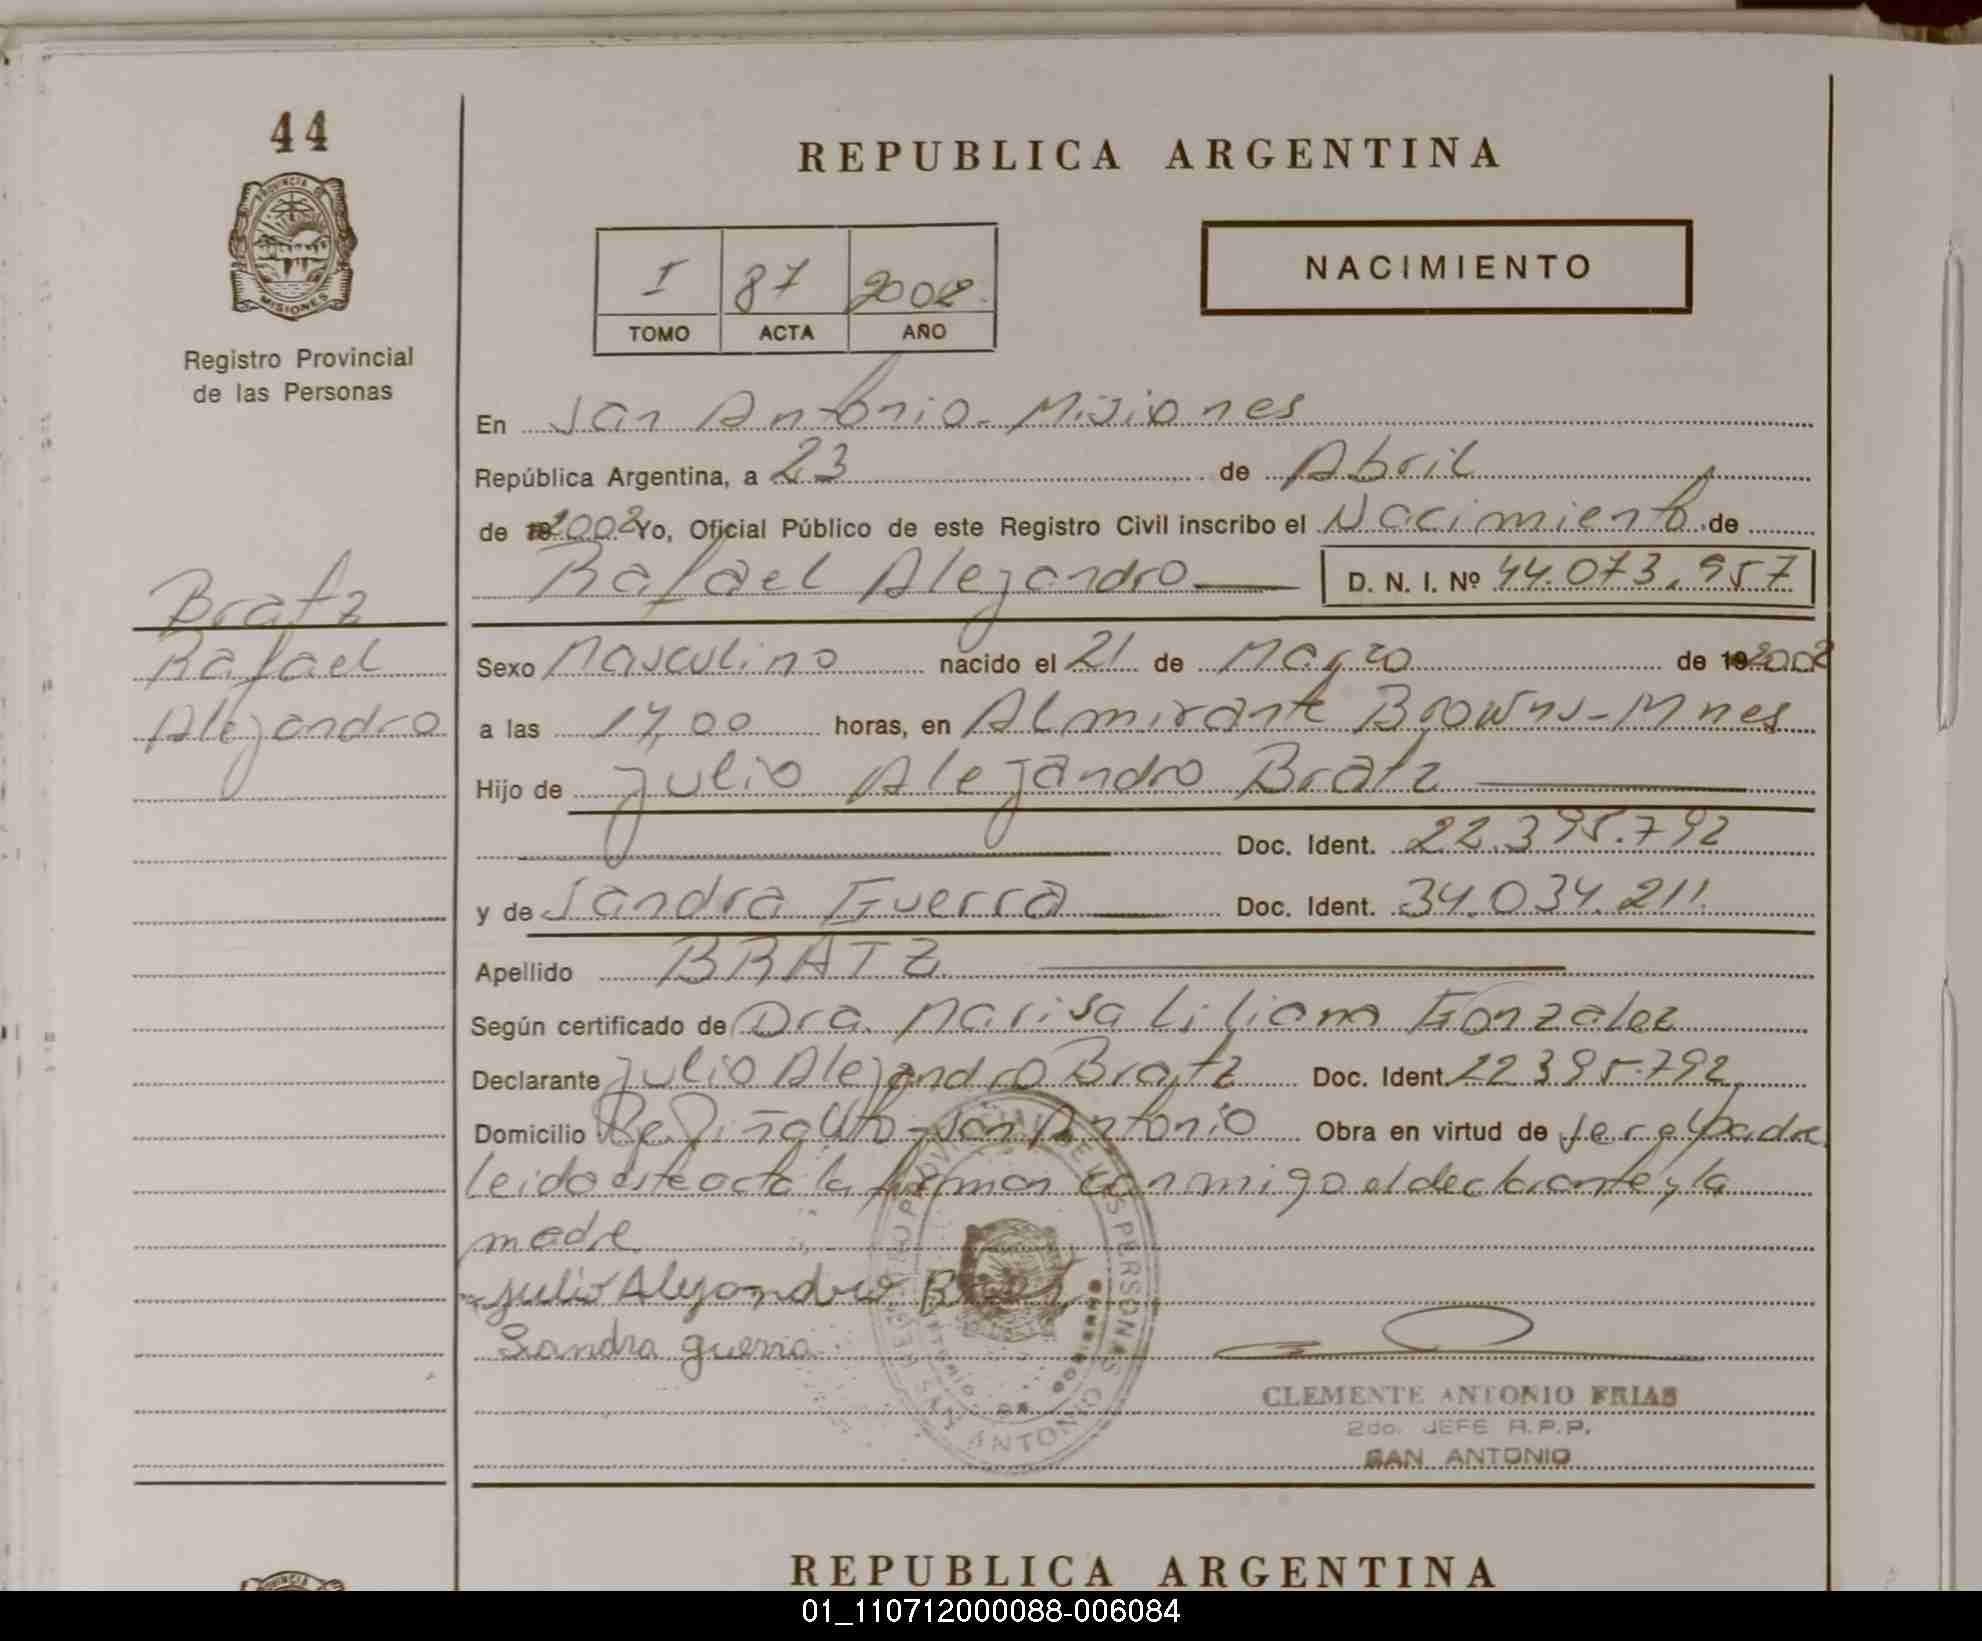 44
REPUBLICA ARGENTINA
PROVINCIA DE
MISIONES
Registro Provincial
de las Personas
I 87 2002
TOMO ACTA AÑO
NACIMIENTO
En San Antonio - Misiones
República Argentina, a 23 de Abril
de 19 2002 Yo, Oficial Público de este Registro Civil inscribo el Nacimiento de
Rafael Alejandro D. N. I. Nº 44.073.957
Bratz
Rafael
Alejandro
Sexo Masculino nacido el 21 de Marzo de 19 2002
a las 17,00 horas, en Almirante Browns - Mnes
Hijo de Julio Alejandro Bratz
Doc. Ident. 22.395.792
y de Sandra Guerra Doc. Ident. 34.034.211
Apellido BRATZ
Según certificado de Dra. Marisa Liliana Gonzalez
Declarante Julio Alejandro Bratz Doc. Ident. 22.395.792
Domicilio San Antonio Obra en virtud de ser el padre
leido este acta la firman conmigo el declarante y la
madre
Julio Alejandro
Sandra guerra
PERSONAS
SAN ANTONIO
CLEMENTE ANTONIO FRIAS
2do. JEFE R.P.P.
SAN ANTONIO
REPUBLICA ARGENTINA
01_110712000088-006084